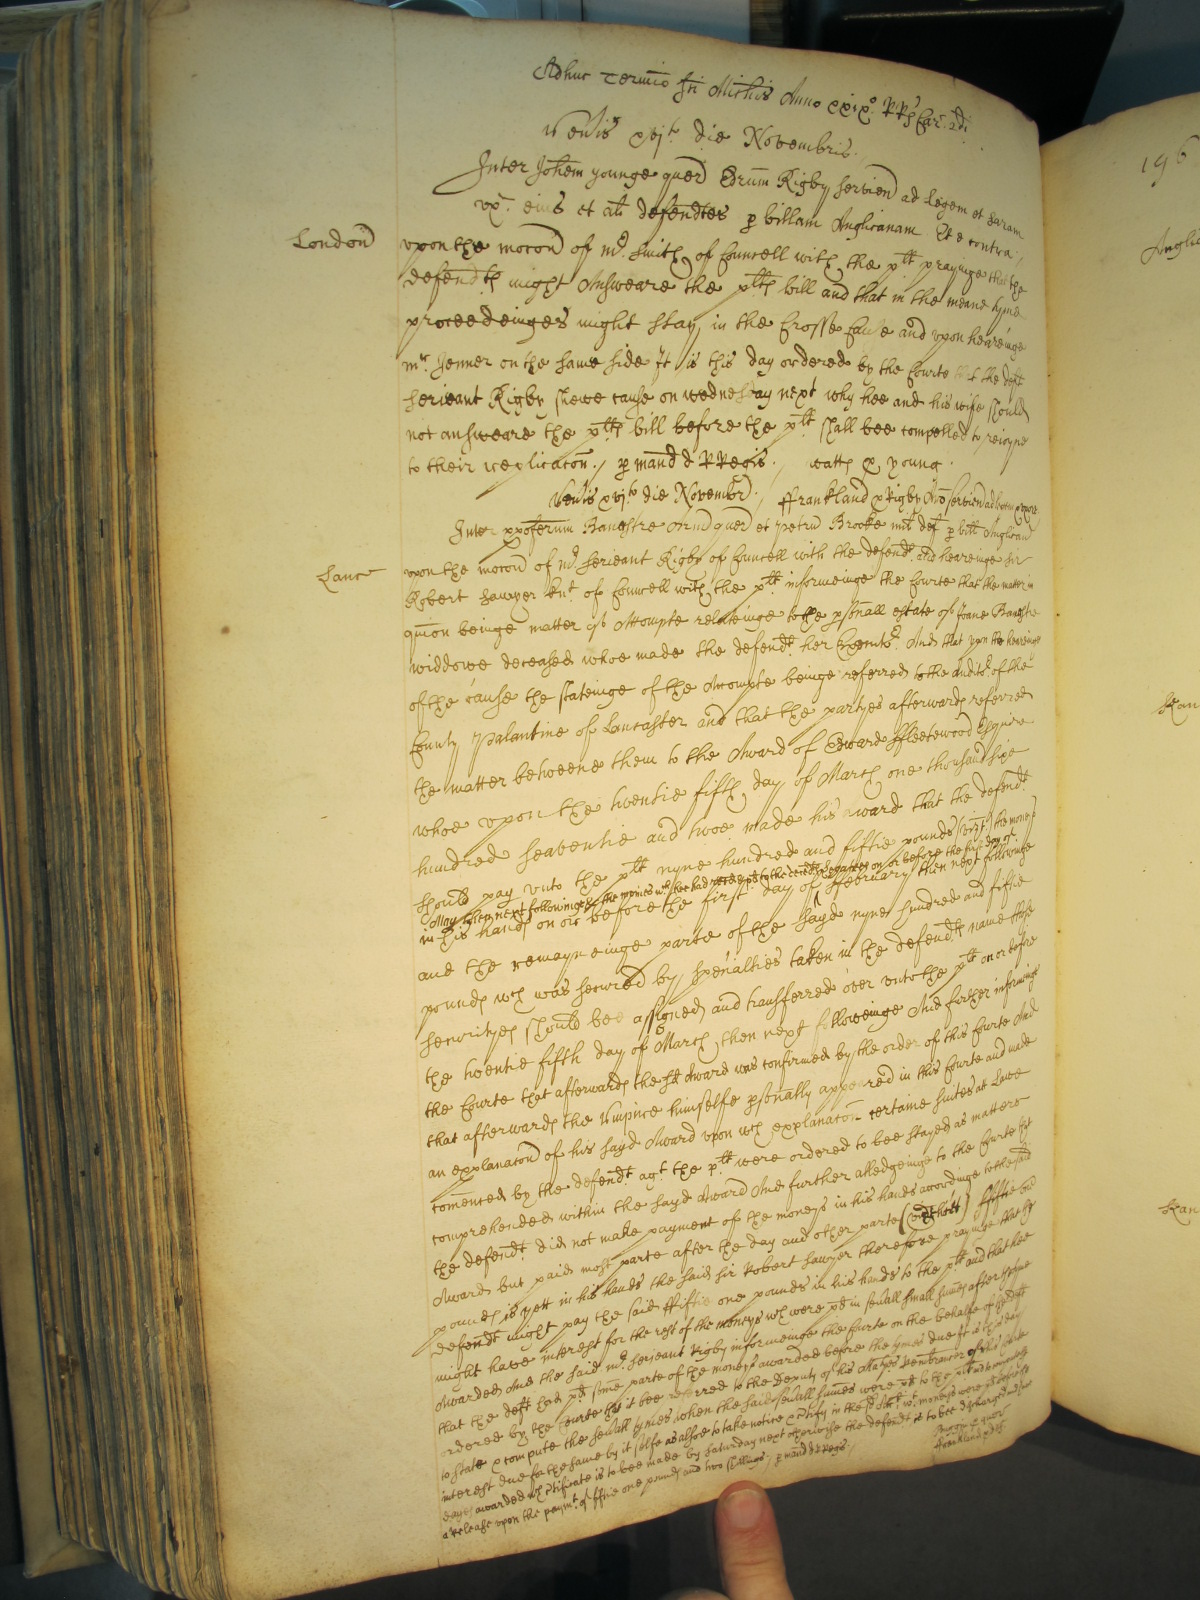 Adhuc Termio Sci Mich̄is Anno xxix° RRs Car: 2di
Ven̄is xvjto die Novembris.
Inter Joh̄em younge quer Edrum̄ Rigby servien ad Legem et Saram
ux: eius et al̄ defendtes p billam Anglicanam Et e contra /
London
upon the mocon of mr. Smith of Councell with the pltt prayinge that the
defendts might Answeare the pltts bill and that in the meane tyme
proceedeinges might stay in the Crosse Cause and upon heareinge
mr Jenner on the same side It is this day ordered by the Courte that the deft
Serieant Rigby shewe cause on wednesday next why hee and his wife should
not answeare the pltts bill before the pltt shall bee compelled to reioyne
to their replicacon. / p mand d RRegis. / watts q young.
Ven̄is xvjto die Novembr. / ffrankland q Rigby servien ad legem
Inter xpoferum Banestre Armd quer et Petrū Brooke milt deft p billt Anglican
Lanc
upon the mocon of mr. Serieant Rigby of Councell with the defendt. and heareinge Sir
Robert Sawyer knt. of Councell with the pltt informeinge the Courte that the matter in
quion beinge matter of Attompte relateinge to the psonall estate of Joane Banestre
widdowe deceased whoe made the defendt. her Executor. And that upon the heareinge
of the cause the stateinge of the Attompte beinge referred to the auditor. of the
County Palantine of Lancaster and that the partyes afterwards referred
the matter betweene them to the Award of Edward ffleetewood Esquire
whoe upon the twentie fifth day of March one thousand sixe
hundred seaventie and twoe made his award that the defendt.
should pay unto the pltt nyne hundred and fiftie pounds (vizt.) the moneys
May then next followinge the monies wch hee had on or before the first day of
in his hands on or before the first day of ffebruary then next followinge
and the remayneinge parte of the sayd nyne hundred and fiftie
pounds wch was secured by spenalties taken in the defendts name those
securityes should bee assigned and transferred over unto the pltt on or before
the twentie fifth day of March then next followeinge And further informeinge
the Courte that afterwards the sd Award was confirmed by the order of this Courte And
that afterwards the Umpire himselfe psonally appeared in this Courte and made
an explanacon of his sayd Award upon wch explanacon certaine suites at Lawe
comenced by the defendt agt the pltt were ordered to bee stayed as matters
comprehended within the sayd Award And further alledgeinge to the Courte that
the defendt. did not make payment of the moneys in his hands accordinge to the said
Award but paid most parte after the day and other parte ffiftie one
pounds is yett in his hands the said Sir Robert Sawyer therefore prayinge that the
defendt might pay the said ffiftie one pounds in his hands to the pltt and that hee
might have interest for the rest of the moneys wch were pd in sevall small sumes after the tyme
Awarded And the said mr. Serieant Rigby informeinge the Courte on the behalfe of the deft
that the deft had pd some parte of the moneys awarded before the tymes due It is this day
ordered by the Courte that it bee referred to the Deputy of his Matyes Rembrancer of this Courte
to state & compute the sevall tymes when the said sevall sumes were pd to the pltt and to compute the
interest due for the same by it selfe as alsoe to take notice & tify in the wt moneys were pd before the
dayes awarded wch certificate is to bee made by Saturday next otherwise the defendt is to bee discharged
a release upon the paymt of fiftie one pounds and two shillings. / p mand d RRegis. /
ffrankland
196
Anglic